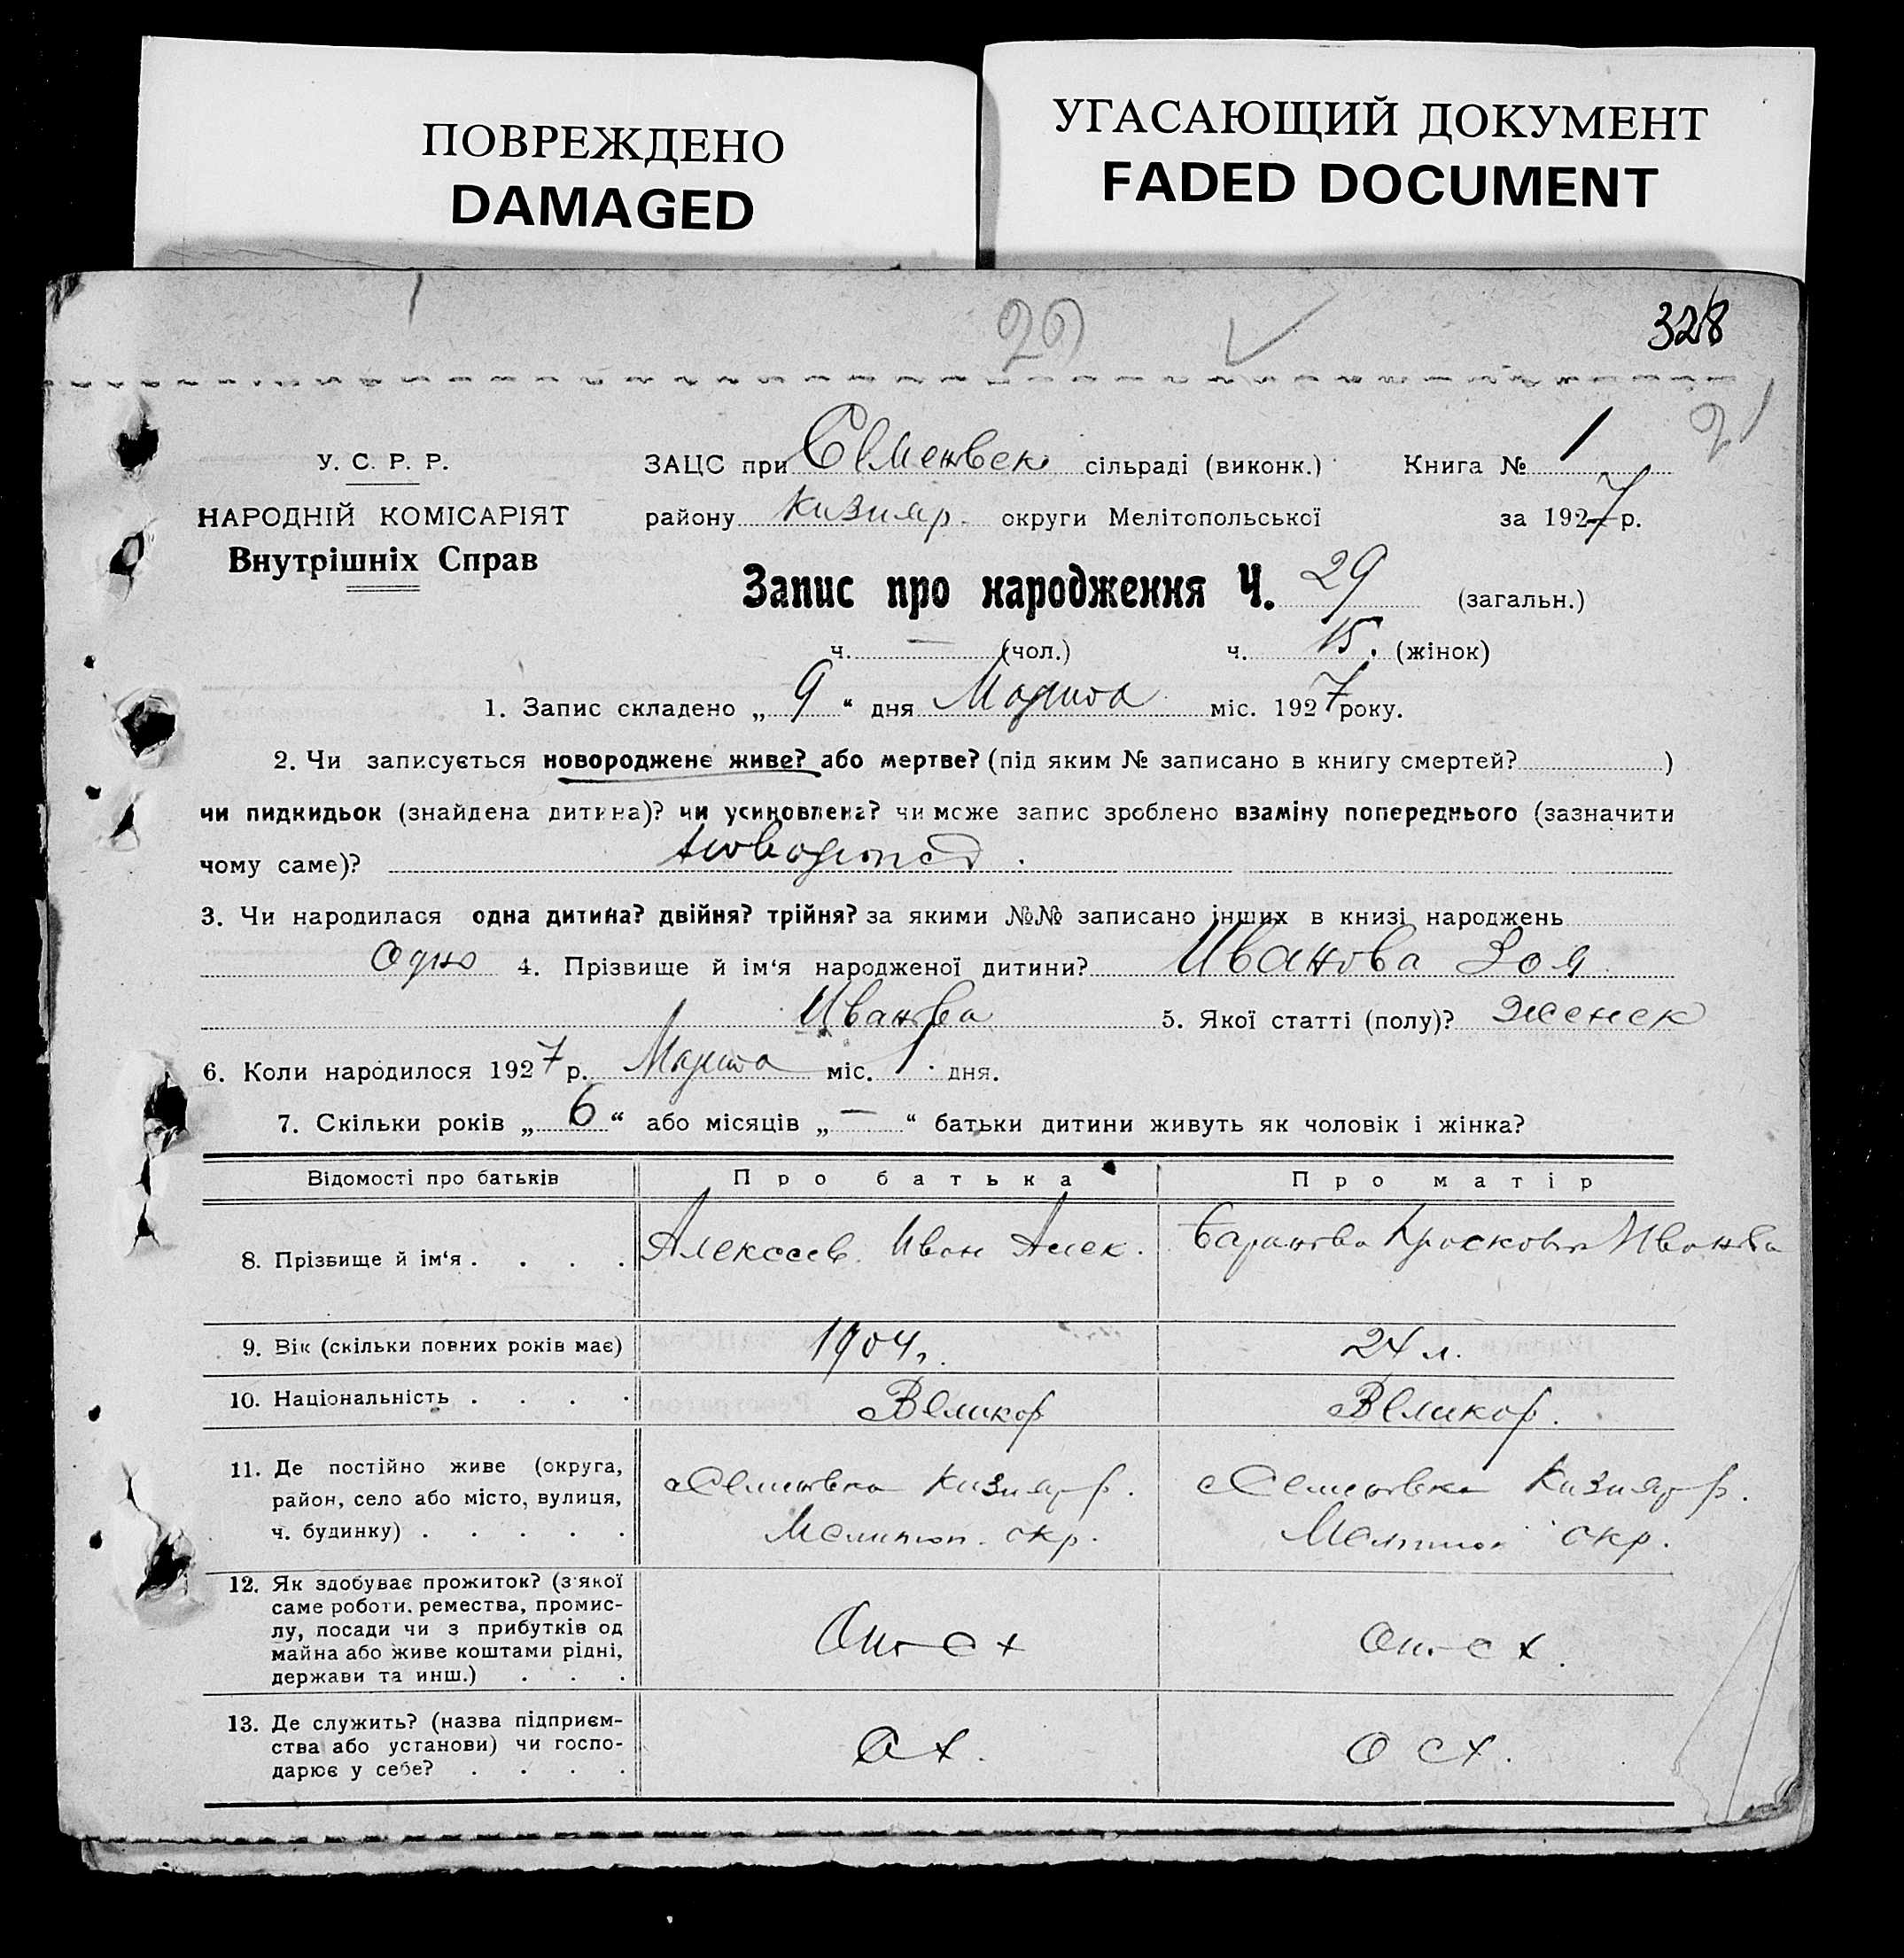 ПОВРЕЖДЕНО
DAMAGED
УГАСАЮЩИЙ ДОКУМЕНТ
FADED DOCUMENT
29
328
21
У. С. Р. Р.
НАРОДНІЙ КОМІСАРІЯТ
Внутрішніх Справ
ЗАЦС при Семенвск сільраді (виконк.) Книга № 1
району Кизияр. округи Мелітопольської за 1927 р.
Запис про народження Ч. 29 (загальн.)
ч. — (чол.) ч. 15. (жінок)
1. Запис складено „ 9 “ дня Марта міс. 1927 року.
2. Чи записується новороджене живе? або мертве? (під яким № записано в книгу смертей? )
чи пидкидьок (знайдена дитина)? чи усиновлена? чи може запис зроблено взаміну попереднього (зазначити
чому саме)?
3. Чи народилася одна дитина? двійня? трійня? за якими №№ записано інших в книзі народжень
Одно 4. Прізвище й ім‘я народженої дитини? Иванова Зоя
Иванова 5. Якої статті (полу)? женск
6. Коли народилося 1927 р. Марта міс. 1 дня.
7. Скільки років „ 6 “ або місяців „ — “ батьки дитини живуть як чоловік і жінка?
Відомості про батьків Про батька Про матір
8. Прізвище й ім‘я . . . . Алексеев. Иван Алек. Баранова Просковия Иванова
9. Вік (скільки повних років має) 1904 г. 24 л.
10. Національність . . . . Великор Великор.
11. Де постійно живе (округа,
район, село або місто, вулиця,
ч. будинку) . . . . .
с Семеновка Кизияр р.
Мелитоп. окр.
с Семеновка Кизияр р.
Мелитоп окр.
12. Як здобуває прожиток? (з якої
саме роботи. ремества, промис-
лу, посади чи з прибутків од
майна або живе коштами рідні,
держави та инш.) . . .
13. Де служить? (назва підприєм-
ства або установи) чи госпо-
дарює у себе? . . . .